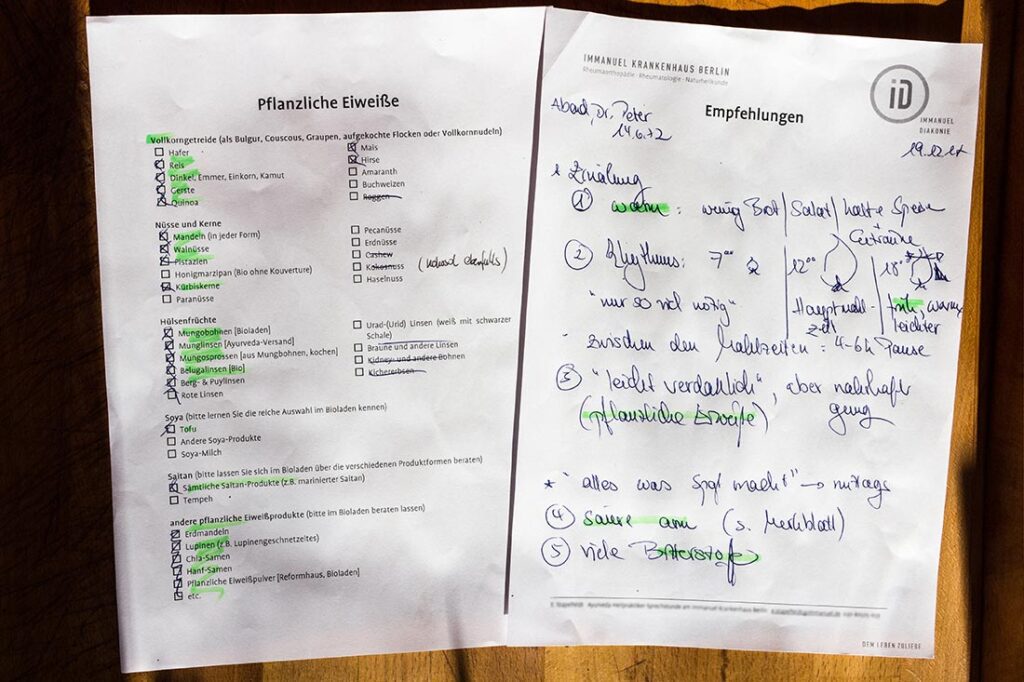 Pflanzliche Eiweiße
Vollkorngetreide (als Bulgur, Couscous, Graupen, aufgekochte Flocken oder Vollkornnudeln)
Hafer
Reis
Dinkel, Emmer, Einkorn, Kamut
Gerste
Quinoa
Mais
Hirse
Amaranth
Buchweizen
Roggen
Nüsse und Kerne
Mandeln (in jeder Form)
Walnüsse
Pistazien
Honigmarzipan (Bio ohne Kouvertüre)
Kürbiskerne
Paranüsse
Pecanüsse
Erdnüsse
Cashew
Kokosnuss
Haselnuss
Hülsenfrüchte
Mungobohnen [Bioladen]
Munglinsen [Ayurveda-Versand]
Mungosprossen [aus Mungbohnen, kochen]
Belugalinsen [Bio]
Berg- & Puylinsen
Rote Linsen
Urad-(Urid) Linsen (weiß mit schwarzer
Schale)
Braune und andere Linsen
Kidney- und andere Bohnen
Kichererbsen
Soya (bitte lernen Sie die reiche Auswahl im Bioladen kennen)
Tofu
Andere Soya-Produkte
Soya-Milch
Saitan (bitte lassen Sie sich im Bioladen über die verschiedenen Produktformen beraten)
Sämtliche Saitan-Produkte (z.B. marinierter Saitan)
Tempeh
andere pflanzliche Eiweißprodukte (bitte im Bioladen beraten lassen)
Erdmandeln
Lupinen (z.B. Lupinengeschnetzeltes)
Chia-Samen
Hanf-Samen
Pflanzliche Eiweißpulver [Reformhaus, Bioladen]
etc.
IMMANUEL KRANKENHAUS BERLIN
Rheumaorthopädie · Rheumatologie · Naturheilkunde
iD
IMMANUEL
DIAKONIE
Empfehlungen
Abad, Dr. Peter
14.6.72
Ernährung
① warm : wenig Brot / Salat / kalte Speisen
+ Getränke
② Rhythmus: 7⁰⁰ 12⁰⁰ 18⁰⁰
"nur so viel nötig" Hauptmahl- früh, warm,
zeit leichter
- zwischen den Mahlzeiten : 4-6h Pause
③ "leicht verdaulich", aber nahrhaft
(pflanzliche Eiweiße) genug
* "alles was Spaß macht" → mittags
④ säure arm (s. Merkblatt)
⑤ viele Bitterstoffe
DEM LEBEN ZULIEBE